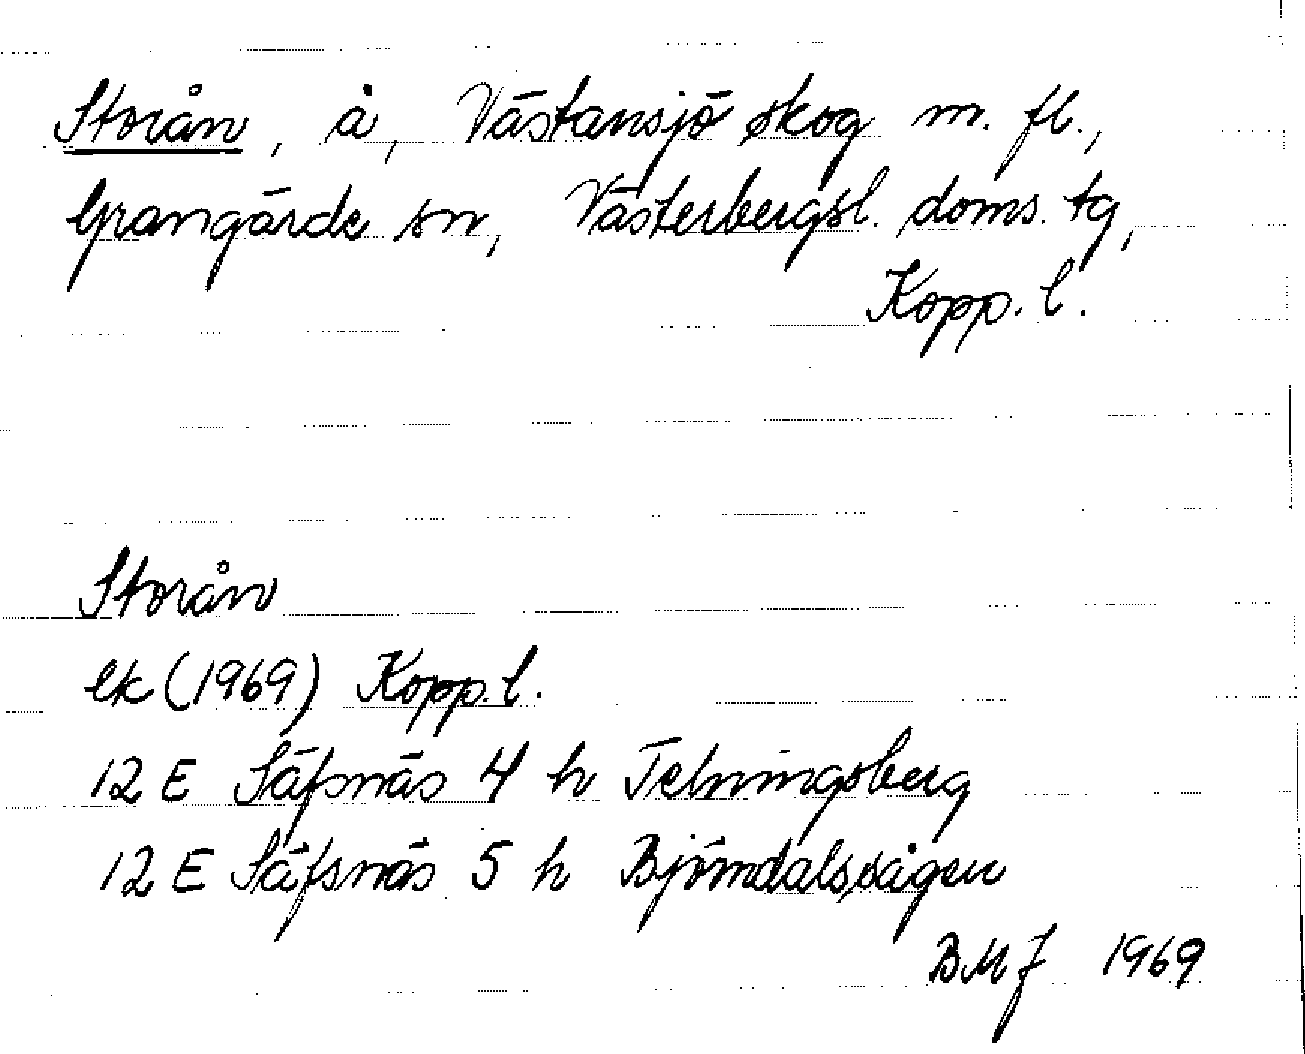 Storån, å, Västansjö skog m. fl.,
Grangärde sn, Västerbergsl. doms. tg,
Kopp. l.
Storån
ek (1969) Kopp. l.
12 E Säfsnäs 4 h Telningsberg
12 E Säfsnäs 5 h Björndalssågen
BMJ 1969